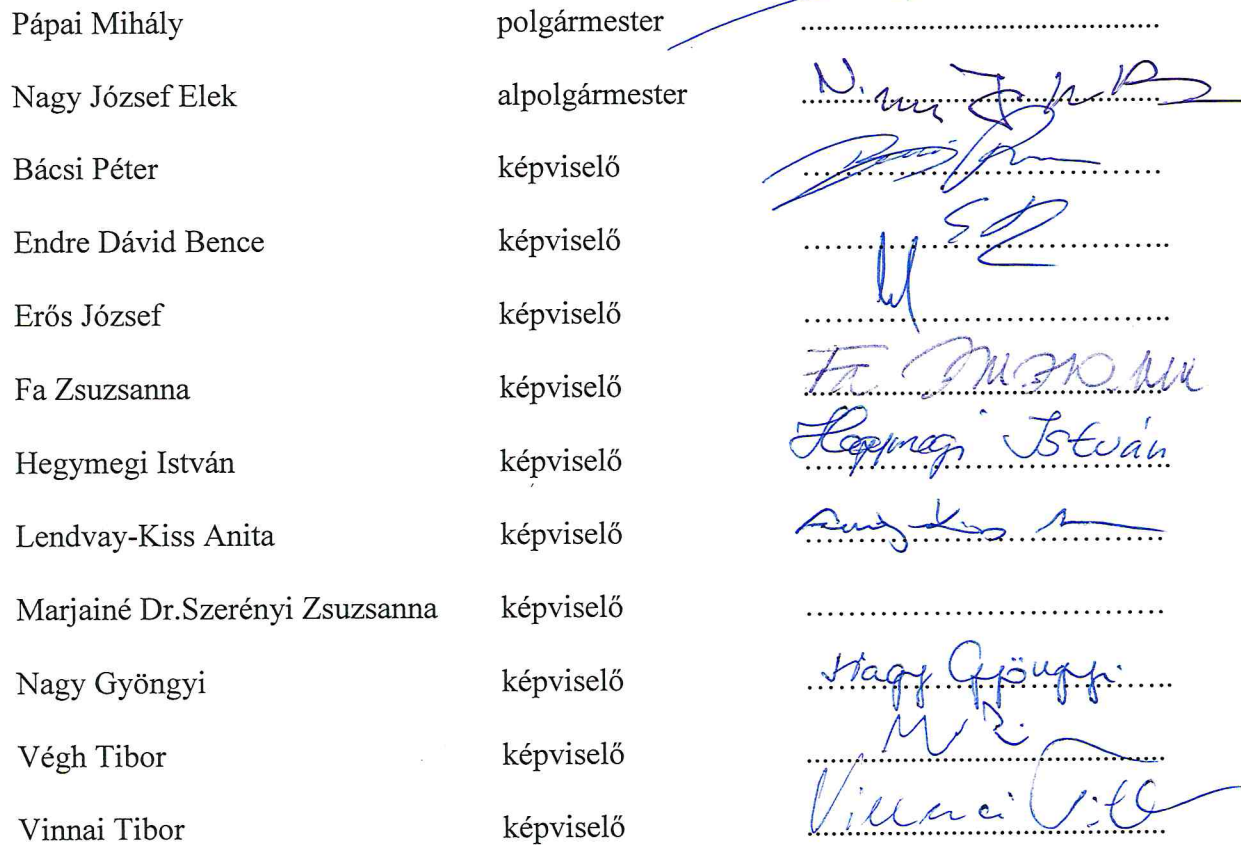 Pápai Mihály polgármester ........................................
Nagy József Elek alpolgármester ........................................
Bácsi Péter képviselő ........................................
Endre Dávid Bence képviselő ........................................
Erős József képviselő ........................................
Fa Zsuzsanna képviselő Fa Zsuzsanna
Hegymegi István képviselő Hegymegi István
Lendvay-Kiss Anita képviselő ........................................
Marjainé Dr.Szerényi Zsuzsanna képviselő ........................................
Nagy Gyöngyi képviselő Nagy Gyöngyi
Végh Tibor képviselő ........................................
Vinnai Tibor képviselő ........................................